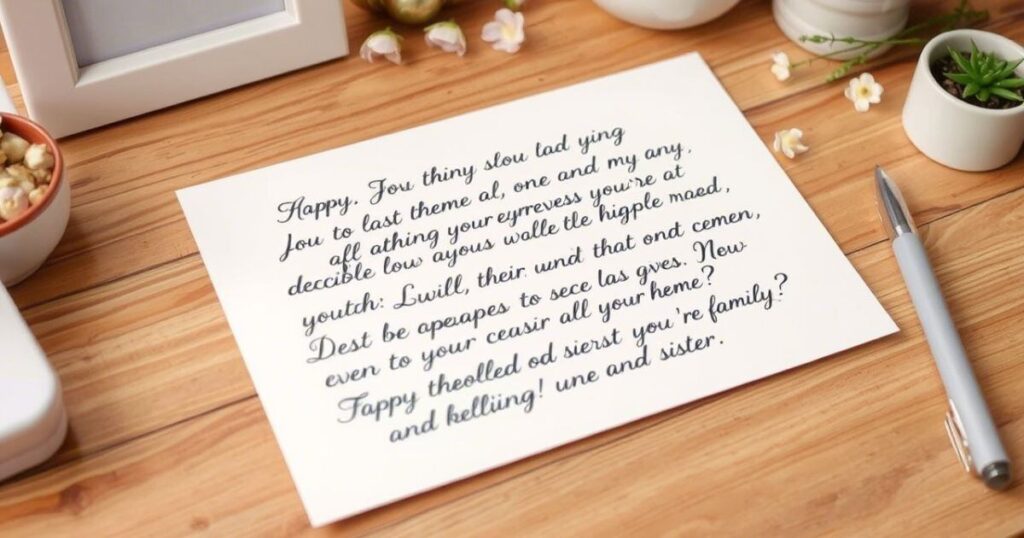 Happy. Fou thiny slou lad ying
Jou to last theme al, one and my any,
aff athing your eyrrevess you're at
deccible low ayous walle tle higple maed,
youtch: Lwill, their wnd that ond cemen,
Dest be apeaapes to sece las gves. New
even to your ceasir all your heme?
Fappy theolled od sierst you're family?
and kelliing! une and sister.